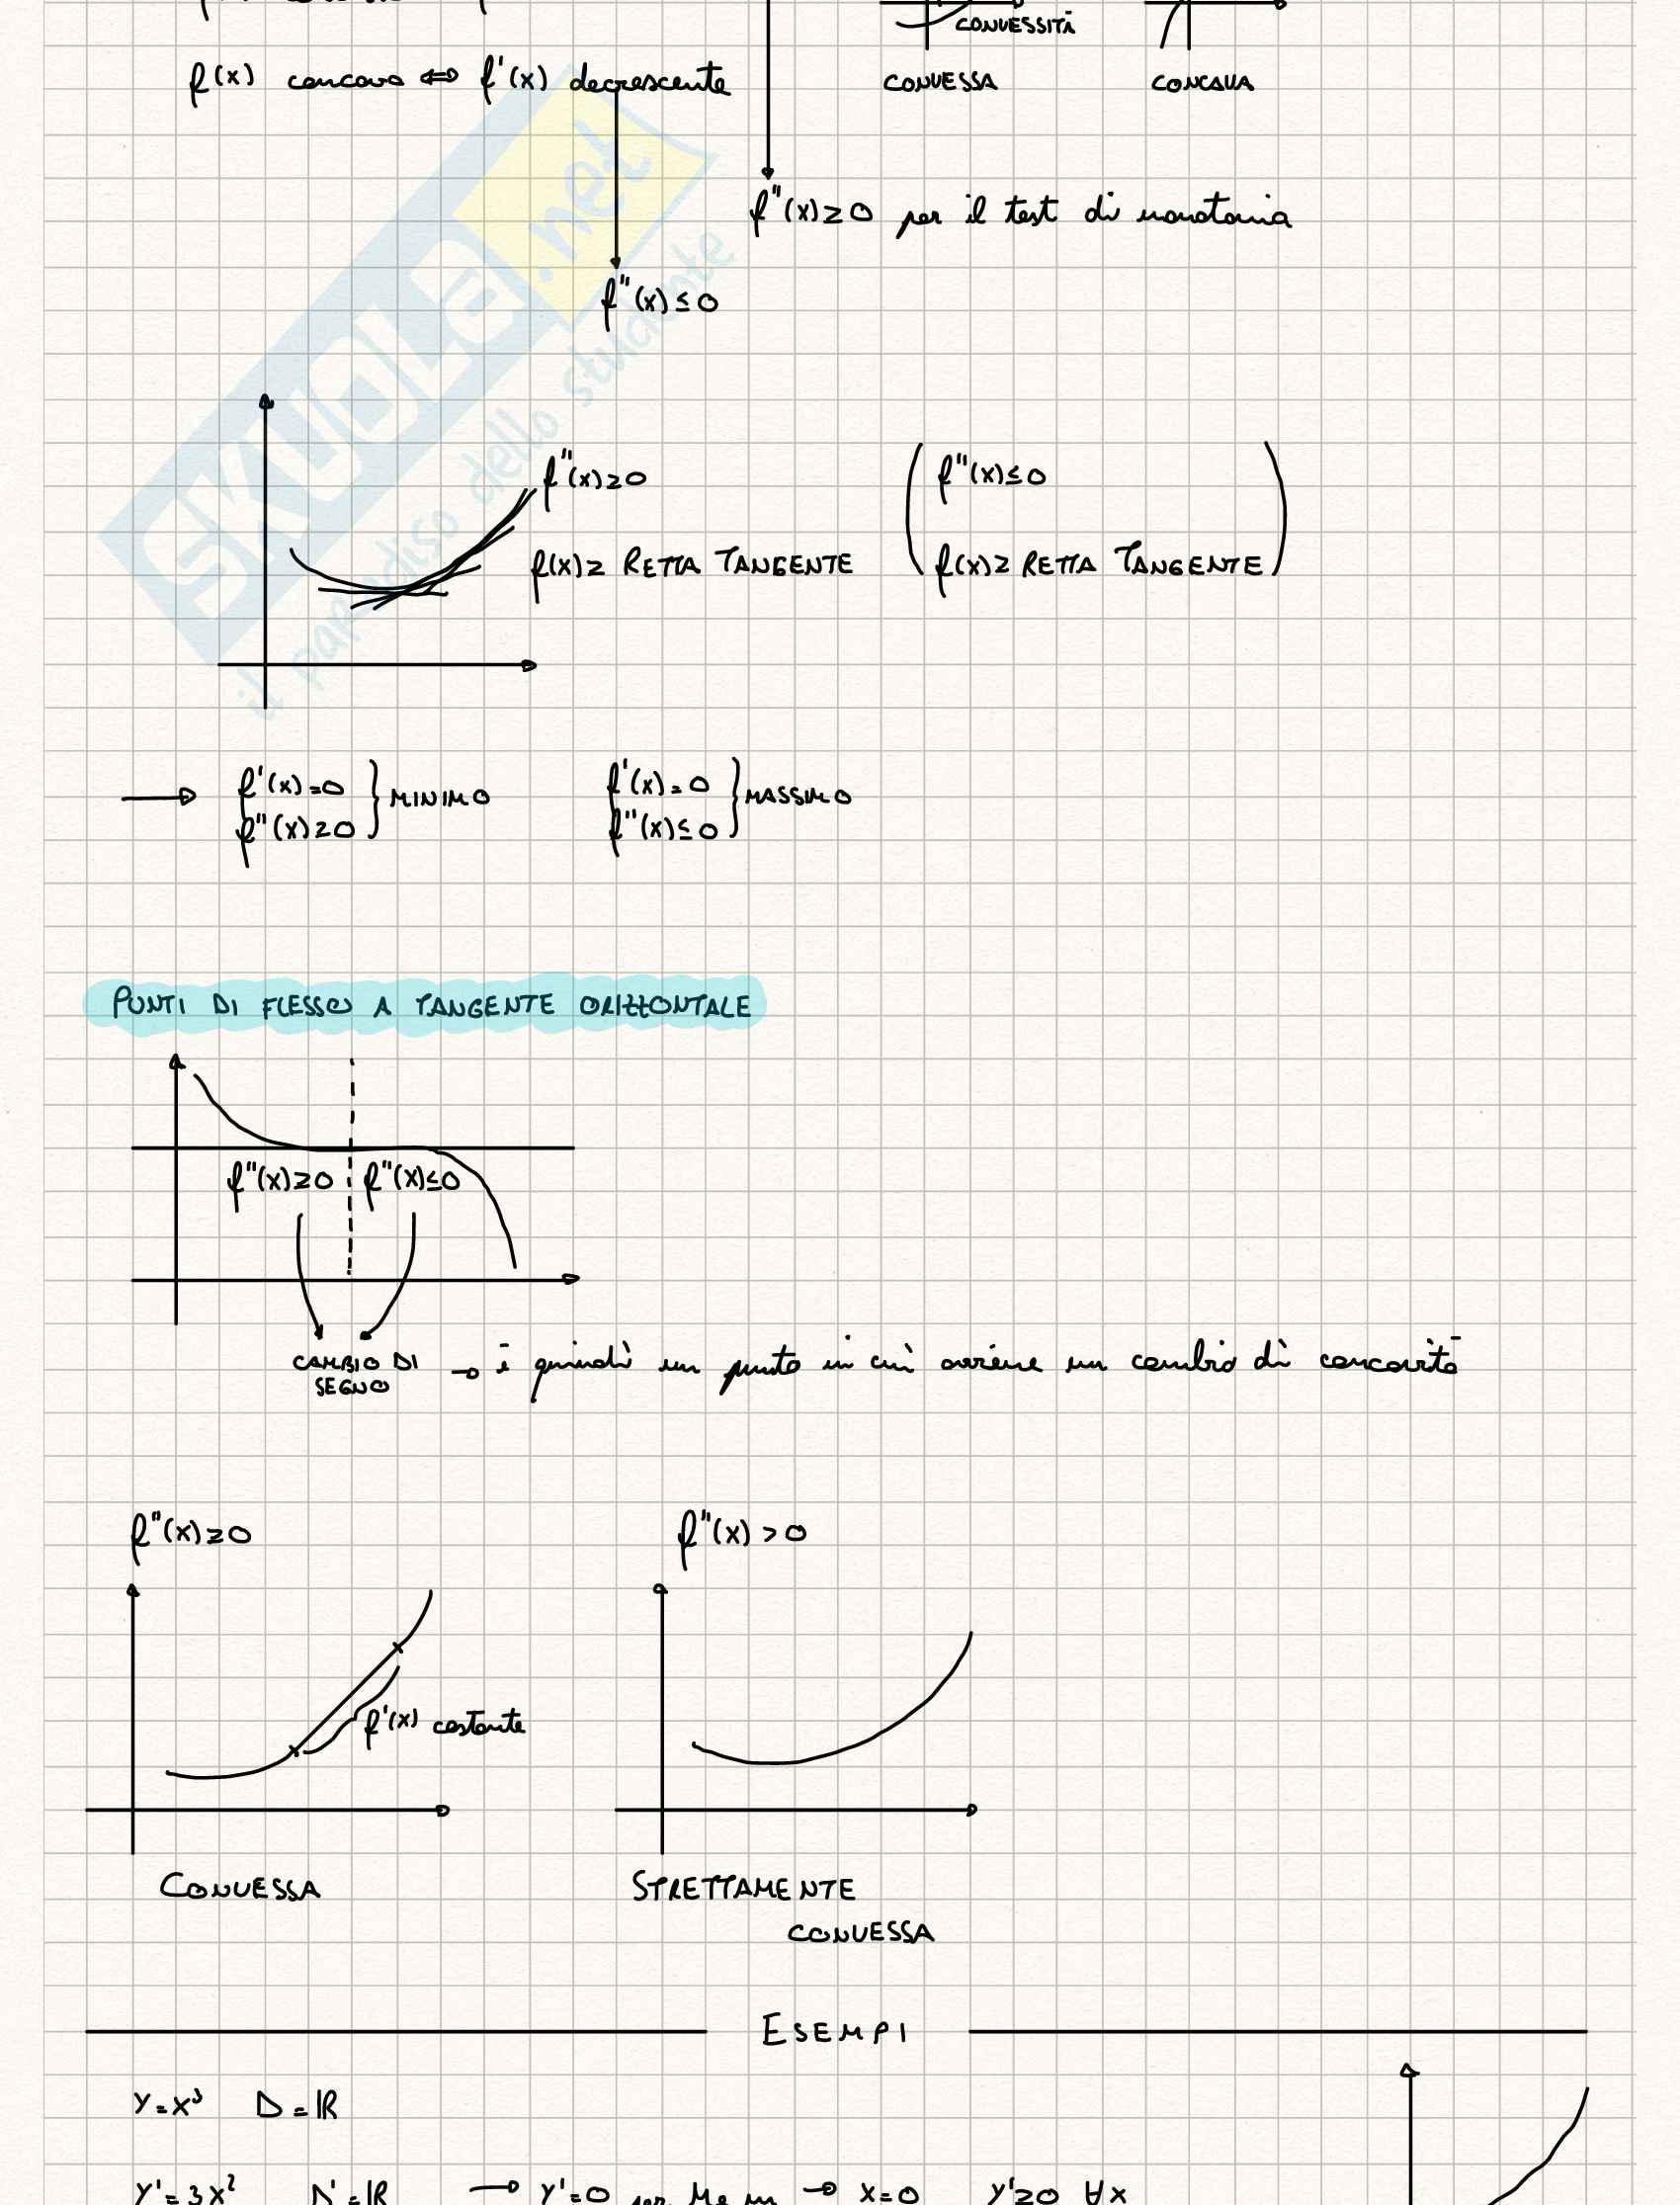 CONVESSITÀ
f(x) concava ⇔ f'(x) decrescente
CONVESSA
CONCAVA
f"(x)≥0 per il test di monotonia
f"(x)≤0
SKUOLA.net
il paradiso dello studente
f"(x)≥0
f(x)≥ RETTA TANGENTE
f"(x)≤0
f(x)≥ RETTA TANGENTE
→ f'(x)=0
f"(x)≥0 } MINIMO
f'(x)=0
f"(x)≤0 } MASSIMO
PUNTI DI FLESSO A TANGENTE ORIZZONTALE
f"(x)≥0 f"(x)≤0
CAMBIO DI
SEGNO
→ è quindi un punto in cui avviene un cambio di concavità
f"(x)≥0
f'(x) costante
CONVESSA
f"(x) >0
STRETTAMENTE
CONVESSA
ESEMPI
y=x³ D=ℝ
y'=3x² D'=ℝ → y'=0 per M e m → x=0 y'≥0 ∀x